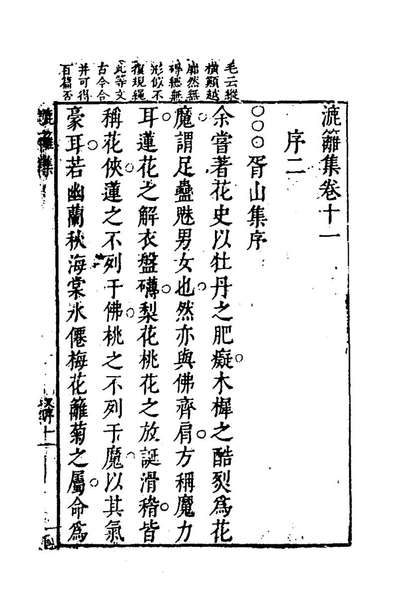 漉籬集卷十一
序二
○○○胥山集序
余嘗著花史以牡丹之肥癡木樨之酷裂為花
魔謂足蠱魅男女也然亦與佛齊肩方稱魔力
耳蓮花之解衣盤礴梨花桃花之放誕滑稽皆
稱花俠蓮之不列于佛桃之不列于魔以其氣
豪耳若幽蘭秋海棠水僊梅花籬菊之屬命為
毛云縱
橫顛越
無
無
形似不
現繩
此等文
古今合
并可得
百篇否
漉籬集